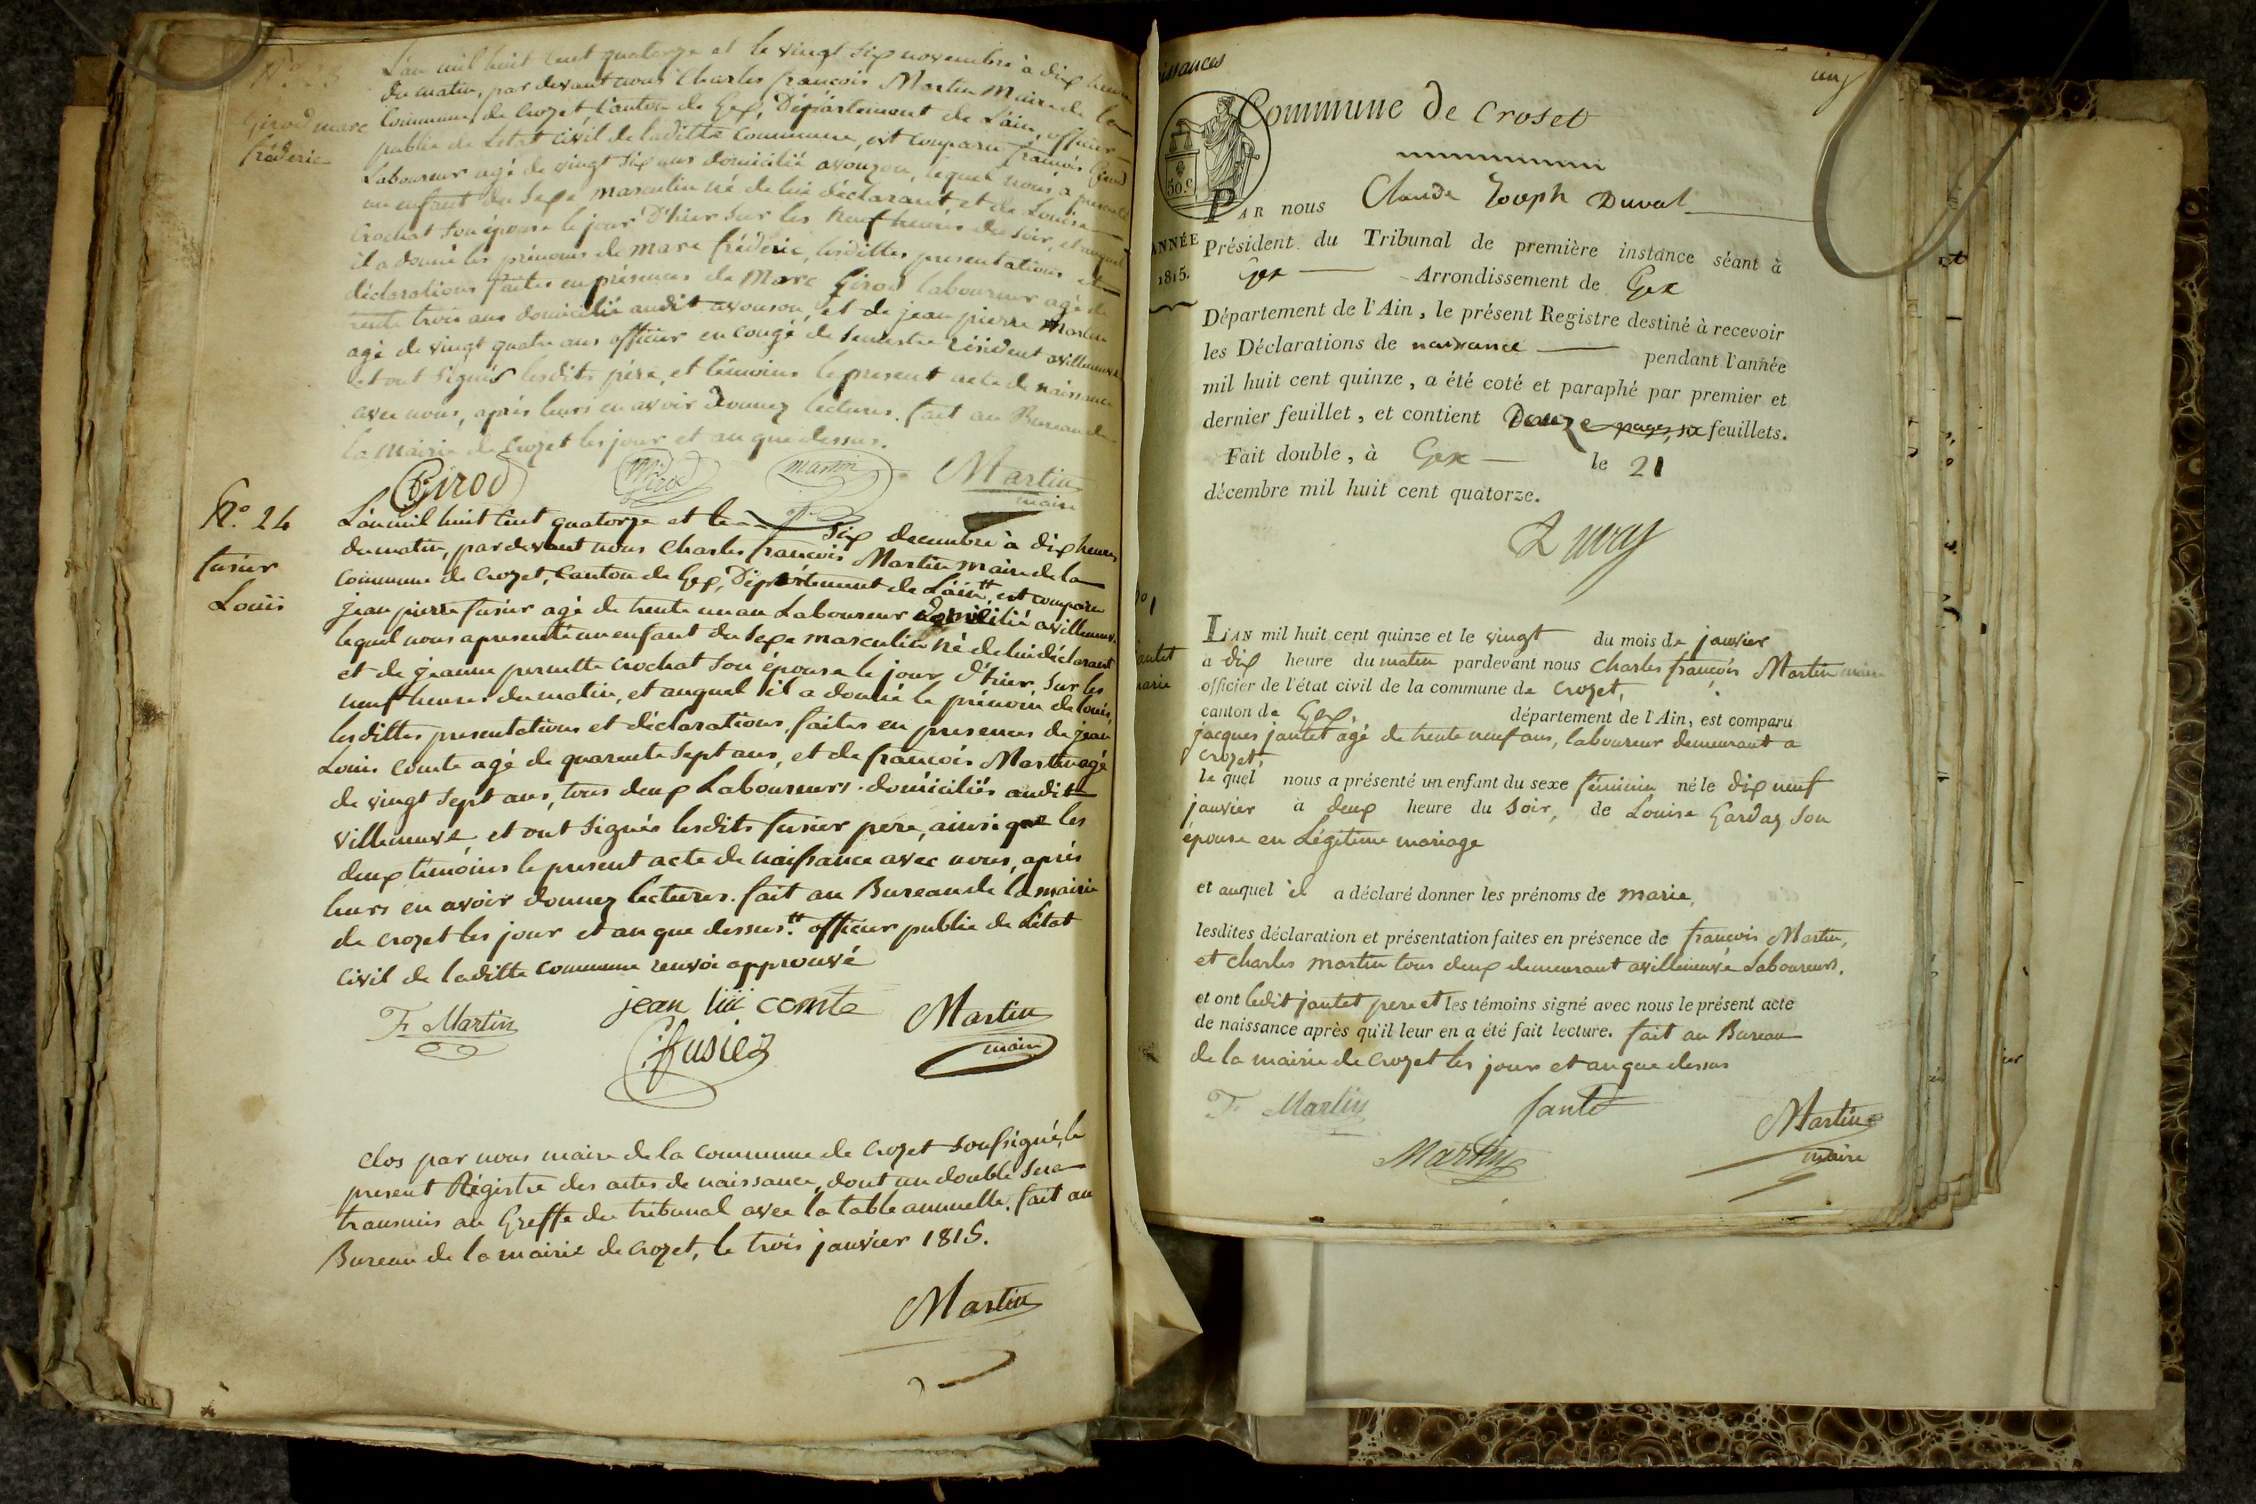 N.° 23
Girod marc
fréderic
L'an mil huit cent quatorze et le vingt six novembre à dix heures
du matin, par devant nous Charles françois Martin Maire de la
Commune de Crozet Canton de Gex, Département de L'ain, officier
public de Letat Civil de laditte Commune, est comparu françois Girod
Laboureur agé de vingt six ans domicilié avouzon, lequel nous a presenté
un enfant du sexe masculin né de lui déclarant et de Louise
Crochat son épouse le jour D'hier sur les neuf heures du soir, et auquel
il a donné les prénoms de marc fréderic, lesdittes presentations et
déclarations faites en présences de Marc Girod laboureur agé de
trente trois ans domicilié audit avouson, et de jean pierre Martin
agé de vingt quatre ans officier en congé de Semestre résident avilleneuve
et ont signés lesdits père, et témoins le present acte de naissance
avec nous, après leurs en avoir donnez lectures. fait au Bureau de
la Mairie de Crozet les jour et an que dessus.
Girod
martin
Martin
maire
N.° 24
fusier
Louis
L'an mil huit cent quatorze et le six decembre à dix heures
du matin, par devant nous Charles françois Martin maire de la
Commune de Crozet, Canton de Gex, Département de L'ain tt, est comparu
jean pierre fusier agé de trente un an Laboureur domicilié avilleneuve
lequel nous apresenté un enfant du sexe masculin né de lui déclarant
et de jeanne pernette Crochat son épouse le jour d'hier sur les
neuf heures du matin, et auquel il a donné le prénom de louis,
lesdittes presentations et déclarations faites en presences de jean
Louis Comte agé de quarente sept ans, et de françois Martin agé
de vingt sept ans, tous deux Laboureurs domiciliés audit
villeneuve et ont signés lesdits fusier pere, ainsi que les
deux témoins le present acte de naissance avec nous, après
leurs en avoir donnez lectures. fait au Bureau de la mairie
de Crozet les jour et an que dessus. tt officier public de L'état
Civil de laditte Commune renvoi approuvé
F. Martin
jean lui comte
Martin
maire
fusier
Clos par nous maire de la Commune de Crozet soussigné, le
present Régistre des actes de naissance, dont un double sera
transmis au Greffe du tribunal avec la table annuelle. fait au
Bureau de la mairie de Crozet, le trois janvier 1815.
Martin
issances
Commune de Croset
50. c
PAR nous Claude Joseph Duval
ANNÉE
1815.
Président du Tribunal de première instance séant à
Gex Arrondissement de Gex
Département de l'Ain, le présent Registre destiné à recevoir
les Déclarations de naissance pendant l'année
mil huit cent quinze, a été coté et paraphé par premier et
dernier feuillet, et contient Douze pages, six feuillets.
Fait double, à Gex le 21
décembre mil huit cent quatorze.
Duval
N.° 1
jantet
marie
L'AN mil huit cent quinze et le vingt du mois de janvier
a dix heure du matin pardevant nous Charles françois Martin maire
officier de l'état civil de la commune de Crozet,
canton de Gex, département de l'Ain, est comparu
jacques jantet agé de trente neuf ans, laboureur demeurant a
Crozet,
le quel nous a présenté un enfant du sexe féminin né le dix neuf
janvier à deux heure du soir, de Louise Gardaz son
épouse en Légitime mariage
et auquel il a déclaré donner les prénoms de marie,
lesdites déclaration et présentation faites en présence de françois Martin,
et Charles martin tous deux demeurant avilleneuve Laboureurs.
et ont ledit jantet pere et les témoins signé avec nous le présent acte
de naissance après qu'il leur en a été fait lecture. fait au Bureau
de la mairie de Crozet les jour et an que dessus
F. Martin
Jantet
Martin
maire
Martin